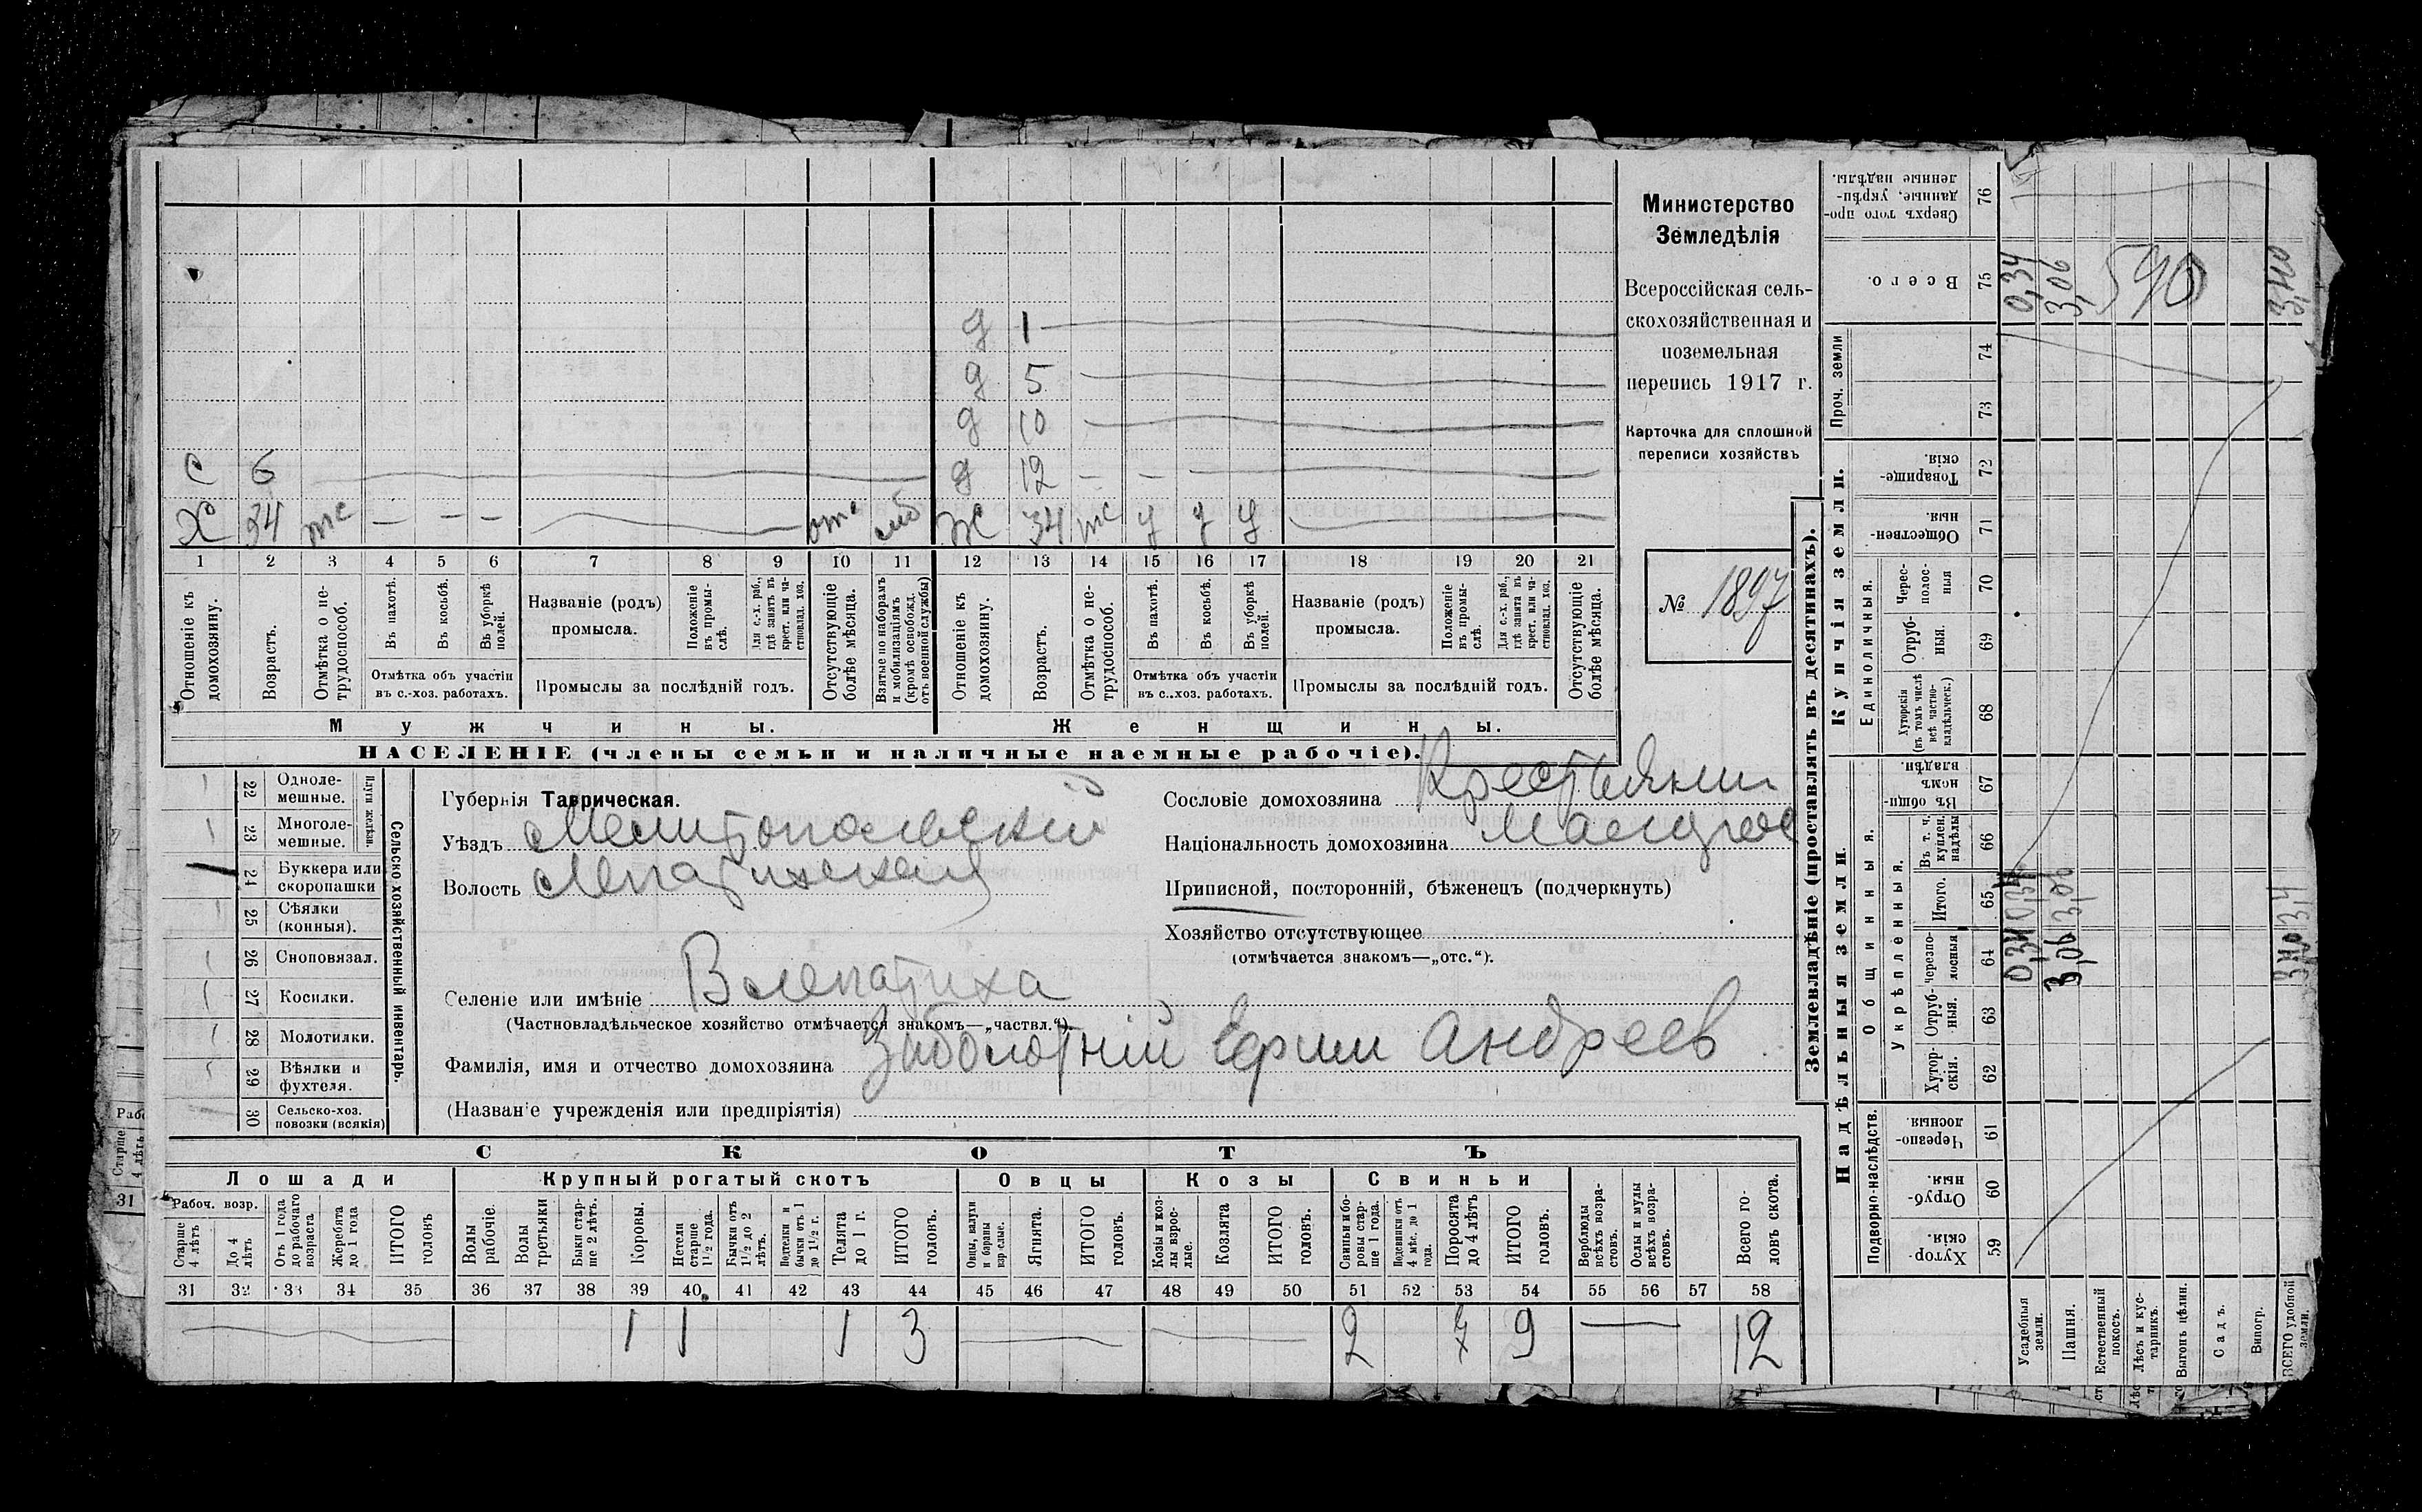 Министерство
Земледѣлія
Всероссійская сель-
скохозяйственная и
поземельная
перепись 1917 г.
Карточка для сплошной
переписи хозяйствъ
№ 1897
д 1
д 5
д 10
С 6 д 12 — —
Х 34 тс — — — отс Ж 34 тс у у у
1 2 3 4 5 6 7 8 9 10 11 12 13 14 15 16 17 18 19 20 21
Отношеніе къ домохозяину.
Возрастъ.
Отмѣтка о не-трудоспособ.
Въ пахотѣ.
Въ косьбѣ.
Въ уборкѣ полей.
Отмѣтка объ участіи
въ с.-хоз. работахъ.
Названіе (родъ)
промысла.
Положеніе въ промы-слѣ.
Для с.-х. раб., гдѣ занятъ въ крест. или ча-стновлад. хоз.
Промыслы за послѣдній годъ.
Отсутствующіе болѣе мѣсяца.
Взятые по наборамъ и мобилизаціямъ (кромѣ освобожд. отъ военной службы)
Отношеніе къ домохозяину.
Возрастъ.
Отмѣтка о не-трудоспособ.
Въ пахотѣ.
Въ косьбѣ.
Въ уборкѣ полей.
Отмѣтка объ участіи
въ с..хоз. работахъ.
Названіе (родъ)
промысла.
Положеніе въ промы-слѣ.
Для с.-х. раб., гдѣ занята въ крест. или ча-стновлад. хоз.
Промыслы за послѣдній годъ.
Отсутствующіе болѣе мѣсяца.
Мужчины. Женщины.
НАСЕЛЕНІЕ (члены семьи и наличные наемные рабочіе).
22 Одноле-мешные.
23 Многоле-мешные.
24 Буккера или скоропашки
25 Сѣялки (конныя).
26 Сноповязал.
27 Косилки.
28 Молотилки.
29 Вѣялки и фухтеля.
30 Сельско-хоз. повозки (всякія)
Сельско хозяйственный инвентарь.
Губернія Таврическая.
Уѣздъ Мелитопольскій
Волость Лепатихская
Селеніе или имѣніе В Лепатиха
(Частновладѣльческое хозяйство отмѣчается знакомъ—„частвл.“)
Фамилія, имя и отчество домохозяина Заболотній Ефим Андреев
(Названіе учрежденія или предпріятія)
Сословіе домохозяина Крестьянин
Національность домохозяина Малорос
Приписной, посторонній, бѣженецъ (подчеркнуть)
Хозяйство отсутствующее
(отмѣчается знакомъ—„отс.“).
СКОТЪ
Лошади Крупный рогатый скотъ Овцы Козы Свиньи
Рабоч. возр.
Старше 4 лѣтъ
До 4 лѣтъ
Отъ 1 года до рабочаго возраста
Жеребята до 1 года
ИТОГО головъ
Волы рабочіе.
Волы третьяки
Быки стар-ше 2 лѣтъ.
Коровы.
Нетели старше 1 1/2 года.
Бычки отъ 1 1/2 до 2 лѣтъ.
Подтелки и бычки отъ 1 до 1 1/2 г.
Телята до 1 г.
ИТОГО головъ.
Овцы, валухи и бараны взрослые.
Ягнята.
ИТОГО головъ.
Козы и коз-лы взрос-лые.
Козлята
ИТОГО головъ.
Свиньи и бо-ровы стар-ше 1 года.
Подсвинки отъ 4 мѣс. до 1 года.
Поросята до 4 лѣтъ
ИТОГО головъ.
Верблюды всѣхъ возра-стовъ.
Ослы и мулы всѣхъ возра-стовъ.
Всего го-ловъ скота.
31 32 33 34 35 36 37 38 39 40 41 42 43 44 45 46 47 48 49 50 51 52 53 54 55 56 57 58
1 1 1 3 2 7 9 — 12
Землевладѣніе (проставлять въ десятинахъ).
Надѣльныя земли. Купчія земли. Проч. земли
Подворно-наслѣдств.
Общинныя.
Укрѣпленныя.
Единоличныя.
59 Хутор-скія.
60 Отруб-ныя.
61 Черезпо-лосныя
62 Хутор-скія.
63 Отруб-ныя.
64 Черезпо-лосныя
65 Итого.
66 Въ т. ч. куплен. надѣлы
67 Въ общин-номъ владѣн.
68 Хуторскія (въ томъ числѣ всѣ частно-владѣльческ.)
69 Отруб-ныя.
70 Черес-полос-ныя
71 Обществен-ныя.
72 Товарище-скія.
73
74
75 Всего.
76 Сверхъ того про-данные, укрѣп-ленные надѣлы.
Усадебныя земли. 0,34 0,34 0,34
Пашня. 3,06 3,06 3,06
Естественный покосъ. 590
Лѣсъ и кус-тарникъ.
Выгонъ цѣлин.
Садъ.
Виногр.
ВСЕГО удобной земли. 3,40 3,4 3,40
Старше 4 лѣтъ
31